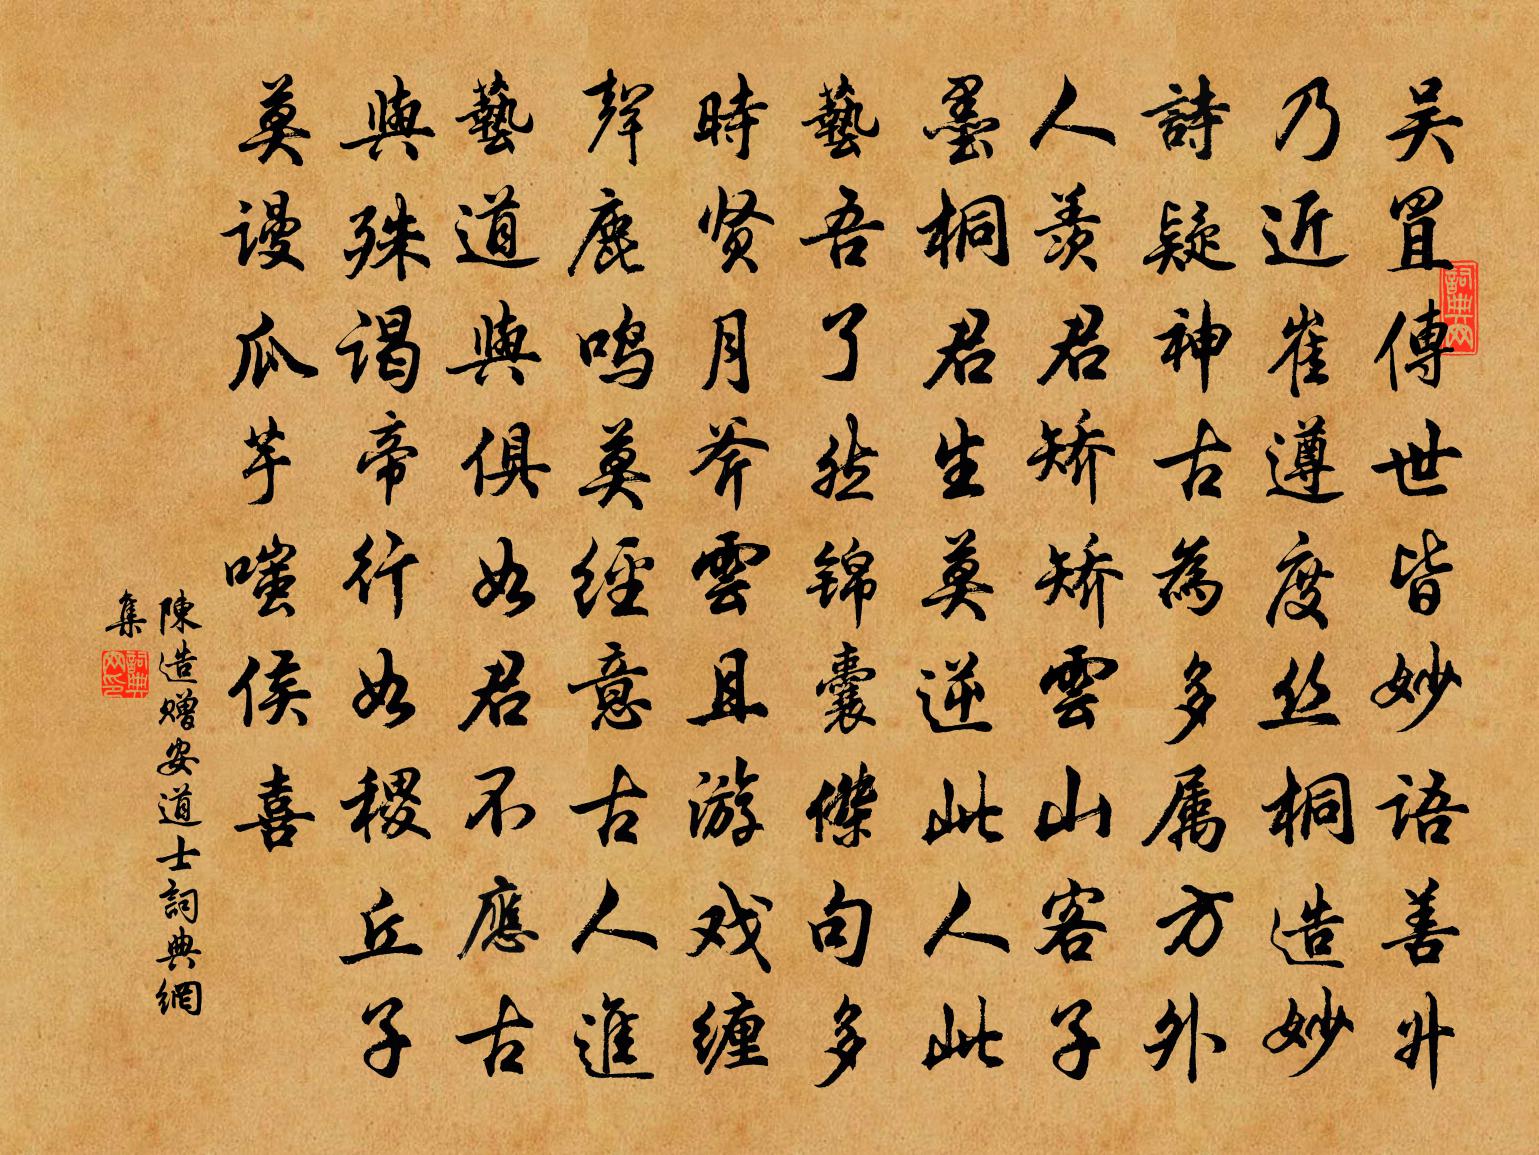 吴罝傳世皆妙語善升
乃近崔遵度丝桐造妙
詩疑神古為多属方外
人羡君矫矫雲山客子
墨桐君生莫逆此人此
藝吾了然锦囊傑句多
時贤月斧雲且游戏缠
聲鹿鸣莫經意古人進
藝道與俱如君不應古
與殊谒帝行如稷丘子
莫谩瓜芋嗤侯喜
陳造赠安道士詞典網
集
詞典网
詞典网印